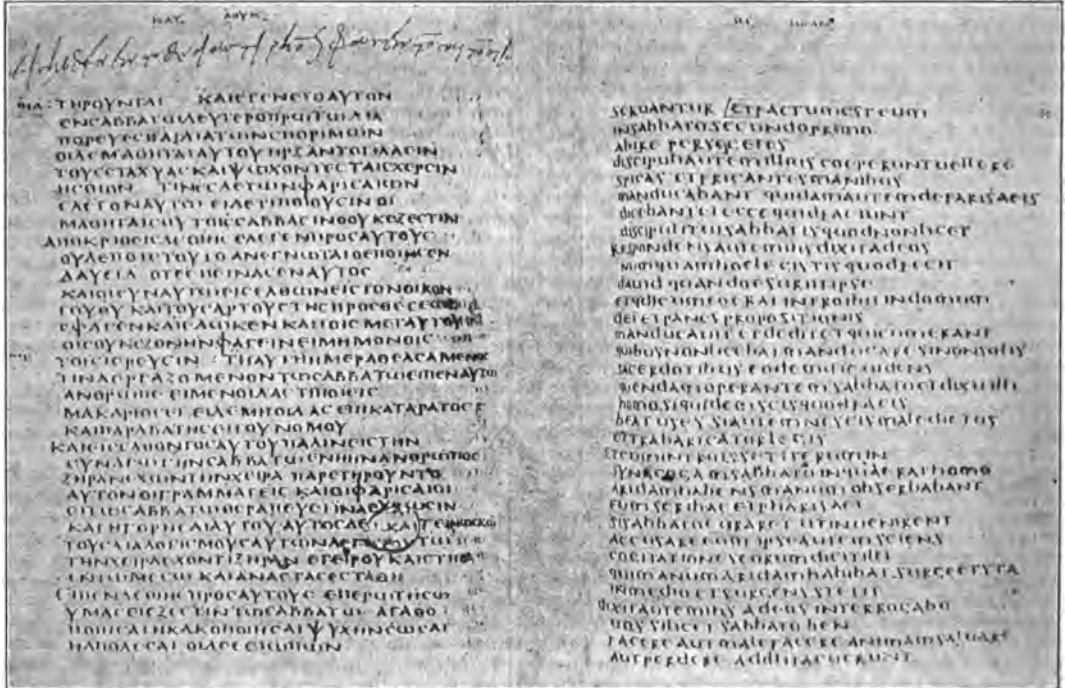 ΚΑΤ ΛΟΥΚ
ΤΗΡΟΥΝΤΑΙ ΚΑΙΕΓΕΝΕΤΟΑΥΤΟΝ
ΕΝϹΑΒΒΑΤΩΔΕΥΤΕΡΟΠΡΩΤΩΔΙΑ
ΠΟΡΕΥΕϹΘΑΙΔΙΑΤΩΝϹΠΟΡΙΜΩΝ
ΟΙΔΕΜΑΘΗΤΑΙΑΥΤΟΥΗΡΞΑΝΤΟΤΙΛΛΕΙΝ
ΤΟΥϹϹΤΑΧΥΑϹΚΑΙΨΩΧΟΝΤΕϹΤΑΙϹΧΕΡϹΙΝ
ΗϹΘΙΟΝ ΤΙΝΕϹΔΕΤΩΝΦΑΡΙϹΑΙΩΝ
ΕΛΕΓΟΝΑΥΤΩΕΙΔΕΤΙΠΟΙΟΥϹΙΝΟΙ
ΜΑΘΗΤΑΙϹΟΥΤΟΙϹϹΑΒΒΑϹΙΝΟΟΥΚΕΞΕϹΤΙΝ
ΑΠΟΚΡΙΘΕΙϹΔΕΟΙΗϹΕΛΕΓΕΝΠΡΟϹΑΥΤΟΥϹ
ΟΥΔΕΠΟΤΕΤΟΥΤΟΑΝΕΓΝΩΤΑΙΟΕΠΟΙΗϹΕΝ
ΔΑΥΕΙΔ ΟΤΕΕΠΕΙΝΑϹΕΝΑΥΤΟϹ
ΚΑΙΟΙϹΥΝΑΥΤΩΕΙϹΕΛΘΩΝΕΙϹΤΟΝΟΙΚΟΝ
ΤΟΥΘΥ ΚΑΙΤΟΥϹΑΡΤΟΥϹΤΗϹΠΡΟϹΘΕϹΕΩϹ
ΕΦΑΓΕΝΚΑΙΕΔΩΚΕΝΚΑΙΤΟΙϹΜΕΤΑΥΤΟΥ
ΟΙϹΟΥΚΕΞΟΝΗΝΦΑΓΕΙΝΕΙΜΗΜΟΝΟΙϹ
ΤΟΙϹΙΕΡΕΥϹΙΝ ΤΗΑΥΤΗΗΜΕΡΑΘΕΑϹΑΜΕΝΟϹ
ΤΙΝΑΕΡΓΑΖΟΜΕΝΟΝΤΩϹΑΒΒΑΤΩΕΙΠΕΝΑΥΤΩ
ΑΝΘΡΩΠΕ ΕΙΜΕΝΟΙΔΑϹΤΙΠΟΙΕΙϹ
ΜΑΚΑΡΙΟϹΕΙ ΕΙΔΕΜΗΟΙΔΑϹΕΠΙΚΑΤΑΡΑΤΟϹ
ΚΑΙΠΑΡΑΒΑΤΗϹΕΙΤΟΥΝΟΜΟΥ
ΚΑΙΕΙϹΕΛΘΟΝΤΟϹΑΥΤΟΥΠΑΛΙΝΕΙϹΤΗΝ
ϹΥΝΑΓΩΓΗΝϹΑΒΒΑΤΩΕΝΗΗΝΑΝΘΡΩΠΟϹ
ΞΗΡΑΝΕΧΩΝΤΗΝΧΕΙΡΑ ΠΑΡΕΤΗΡΟΥΝΤΟ
ΑΥΤΟΝΟΙΓΡΑΜΜΑΤΕΙϹ ΚΑΙΟΙΦΑΡΙϹΑΙΟΙ
ΕΙΤΩϹΑΒΒΑΤΩΘΕΡΑΠΕΥΕΙΙΝΑΕΥΡΩϹΙΝ
ΚΑΤΗΓΟΡΗϹΑΙΑΥΤΟΥΑΥΤΟϹΔΕ
ΤΟΥϹΔΙΑΛΟΓΙϹΜΟΥϹΑΥΤΩΝΛΕΓΕΙΤΩ
ΤΗΝΧΕΙΡΑΕΧΟΝΤΙΞΗΡΑΝ ΕΓΕΙΡΟΥ ΚΑΙϹΤΗΘΙ
ΕΝΤΩΜΕϹΩ ΚΑΙΑΝΑϹΤΑϹΕϹΤΑΘΗ
ΕΙΠΕΝΔΕΟΙΗϹΠΡΟϹΑΥΤΟΥϹ ΕΠΕΡΩΤΗϹΩ
ΥΜΑϹΕΙΕΞΕϹΤΙΝΤΩϹΑΒΒΑΤΩ ΑΓΑΘΟ
ΠΟΙΗϹΑΙΗΚΑΚΟΠΟΙΗϹΑΙ ΨΥΧΗΝϹΩϹΑΙ
ΗΑΠΟΛΕϹΑΙ ΟΙΔΕΕϹΙΩΠΩΝ
seruantur etfactumesteum
insabbatosecundoprimo
abire persegetes
discipuliautemilliuscoeperuntuellere
spicas etfricantesmanibus
manducabant quidamautemdefarisaeis
dicebanteieccequidfaciunt
discipulituisabbatisquodnonlicet
respondensautemihsdixitadeos
numquamhoclegistisquodfecit
dauid quandoesuriitipse
etquicumeoerat introibitindomum
dei etpanespropositionis
manducauitetdeditetquicumerant
quibusnonlicebatmanducaresinonsolis
sacerdotibus eodemdieuidens
quendamoperantemsabbatoetdixitilli
homo siquidemscisquodfacis
beatuses siautemnescismaledictus
ettrabaricatorlegis
etcumintroissetiterumin
synagogamsabbatoinquaerathomo
aridamhabensmanumobseruabant
eumscribaeetpharisaei
sisabbatocuraretutinuenirent
accusareeumipseautemsciens
cogitationeseorumdicitilli
quimanumaridamhabebat surgeetsta
inmedioetsurgensstetit
dixitautemihsadeosinterrogabo
uossilicetsabbatoben
facereautmalefacere animamsaluare
autperdere adillitacuerunt